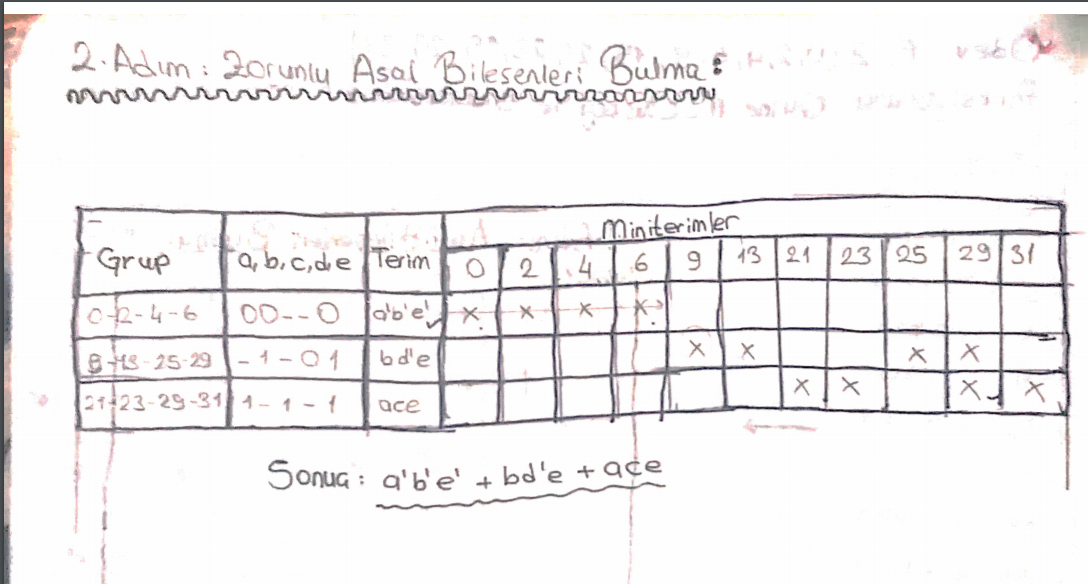 2. Adım: Zorunlu Asal Bileşenleri Bulma:
Miniterimler
Grup a,b,c,d,e Terim 0 2 4 6 9 13 21 23 25 29 31
0-2-4-6 00--0 a'b'e' x x x x
9-13-25-29 -1-01 bd'e x x x x
21-23-29-31 1-1-1 ace x x x x
Sonuç: a'b'e' + bd'e + ace